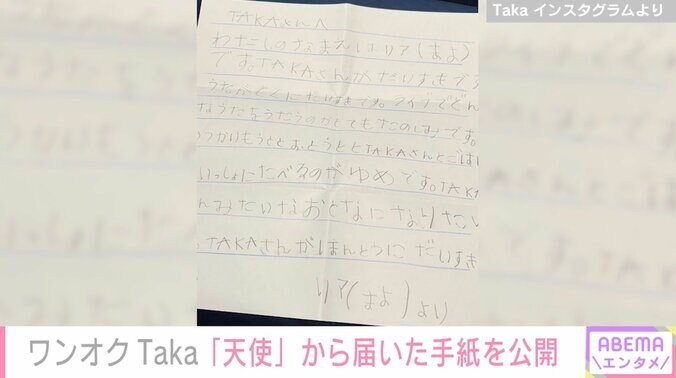 Taka インスタグラムより
TAKAさんへ
わたしのなまえはリア(まよ)
です。TAKAさんがだいすきです
うたが です。ライブでどん
なうたをうたうのかとてもたのしみです。
いつかいもうとと おとうととTAKAさんとごはん
いっしょにたべるのがゆめです。TAKA
んみたいなおとなになりたい
TAKAさんがほんとうに だいすき
リア(まよ)より
ワンオクTaka「天使」から届いた手紙を公開
ABEMA
エンタメ